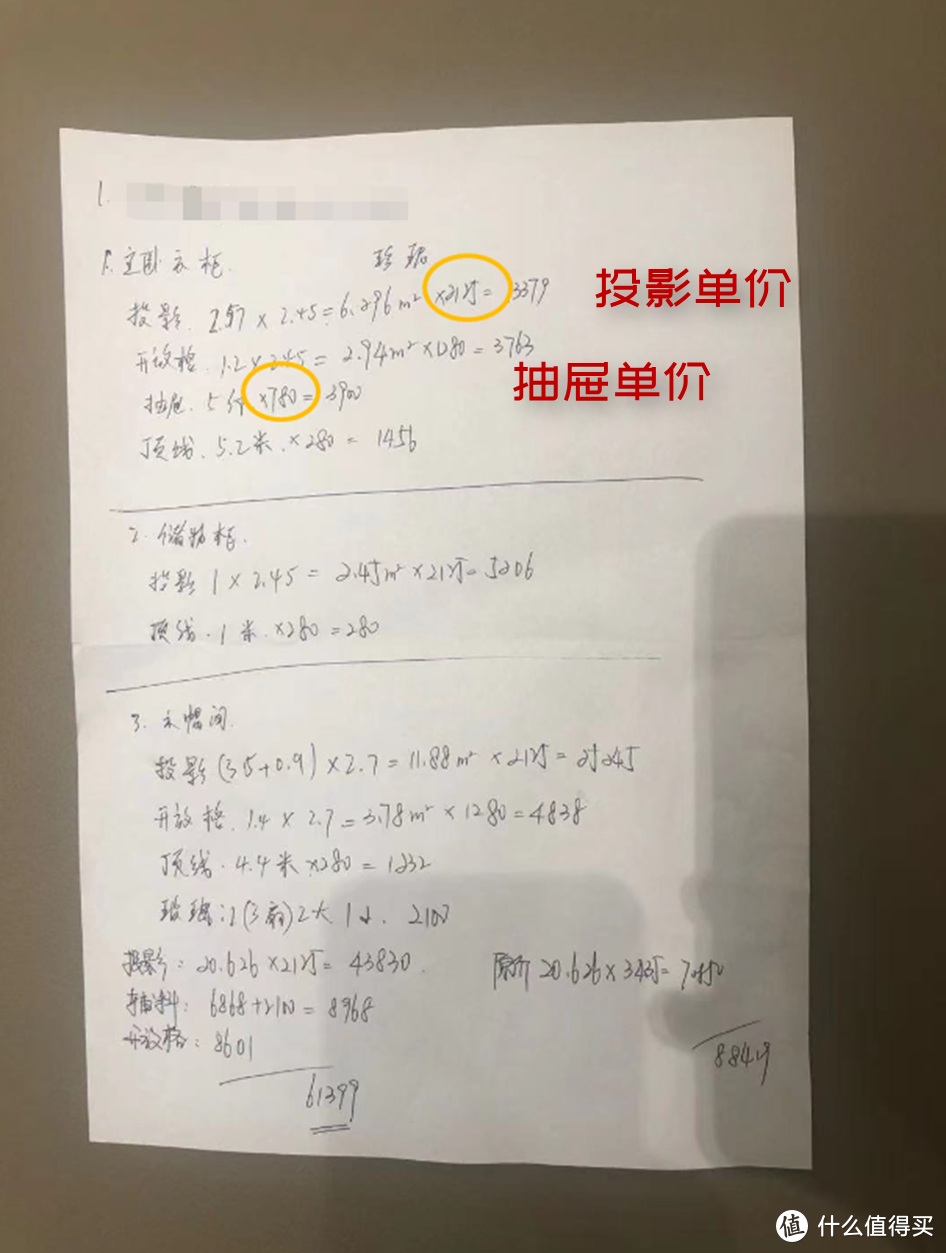 1.
1. 主卧衣柜.
投影. 2.57 × 2.45 = 6.296m² ×2125 = 13379
投影单价
开放格. 1.2 × 2.45 = 2.94m² × 1280 = 3763
抽屉. 5件 ×780 = 3900
抽屉单价
顶线. 5.2米. ×280 = 1456
2. 储物柜.
投影 1 × 2.45 = 2.45m² × 2125 = 5206
顶线. 1米. ×280 = 280
3. 衣帽间.
投影 (3.5+0.9) × 2.7 = 11.88m² × 2125 = 25245
开放格. 1.4 × 2.7 = 3.78m² × 1280 = 4838
顶线. 4.4米 ×280 = 1232
玻璃: (3扇) 2大 1小. 2100
投影: 20.626 × 2125 = 43830.
原价 20.626 × 3435 =
辅料: 6868+2100 = 8968
开放格: 8601
61399
什么值得买